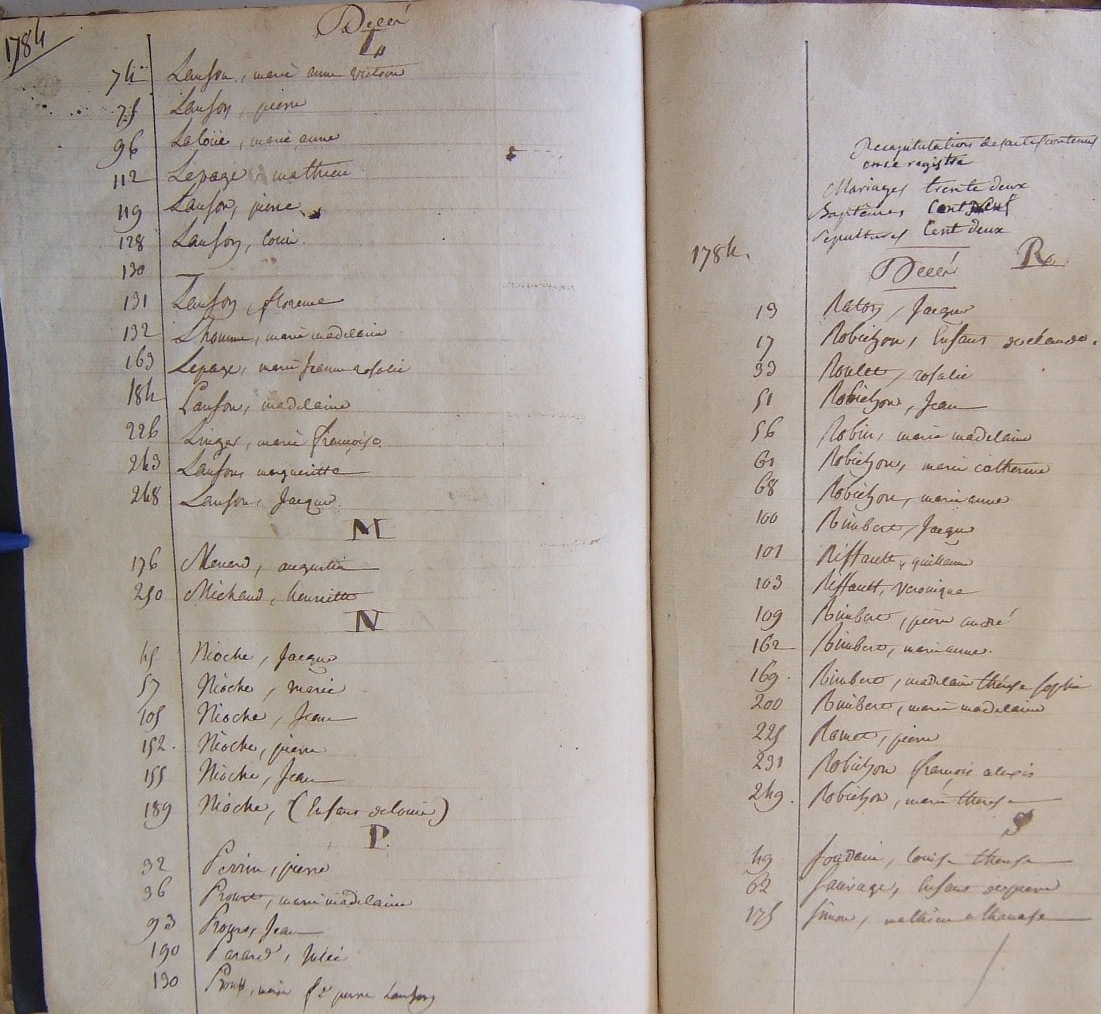 1784
Décés
L
74 Lanson, marie anne victoire
75 Lanson, pierre
96 Laloüe, marie anne
112 Lepage mathieu
119 Lanson, pierre
128 Lanson, louis
130
131 Lanson, florence
132 Lhomme, marie madelaine
163 Lepage, marie jeanne rosalie
184 Lanson, madelaine
226 Linger, marie françoise
243 Lanson, margueritte
248 Lanson, Jacque
M
176 Menard, augustin
250 Michaud, henriette
N
45 Nioche, Jacque
57 Nioche, marie
105 Nioche, Jean
152. Nioche, pierre
155 Nioche, Jean
189 Nioche, (Enfans de louis)
P.
32 Perrin, pierre
36 marie madelaine
93 Jean
190 Parard, Julie
130 marie fe pierre Lanson
Recapitulations des actes contenus
en ce registre
Mariages trente deux
Baptêmes Cent
sepultures Cent deux
1784.
Décés R.
13 Raton, Jacque
17 Robichon, Enfans de claude.
33 Roulet, rosalie
51 Robichon, Jean
56 Robin, marie madelaine
61 Robichon, marie catherine
68 Robichon, marie anne
100 Rimbert, Jacque
101 Riffault, guillaume
103 Riffault, veronique
109 Rimbert, pierre andré
162 Rimbert, marie anne.
169. Rimbert, madelaine thérese sophie
200 Rimbert, marie madelaine
225 Ramet, pierre
231 Robichon françois alexis
249. Robichon, marie therese
S
49 Soudain, louise therese
62 Sauvage, Enfans de pierre
175 Simon, mathieu athanase